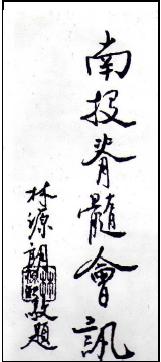 南投脊髓會訊
林源朗敬題